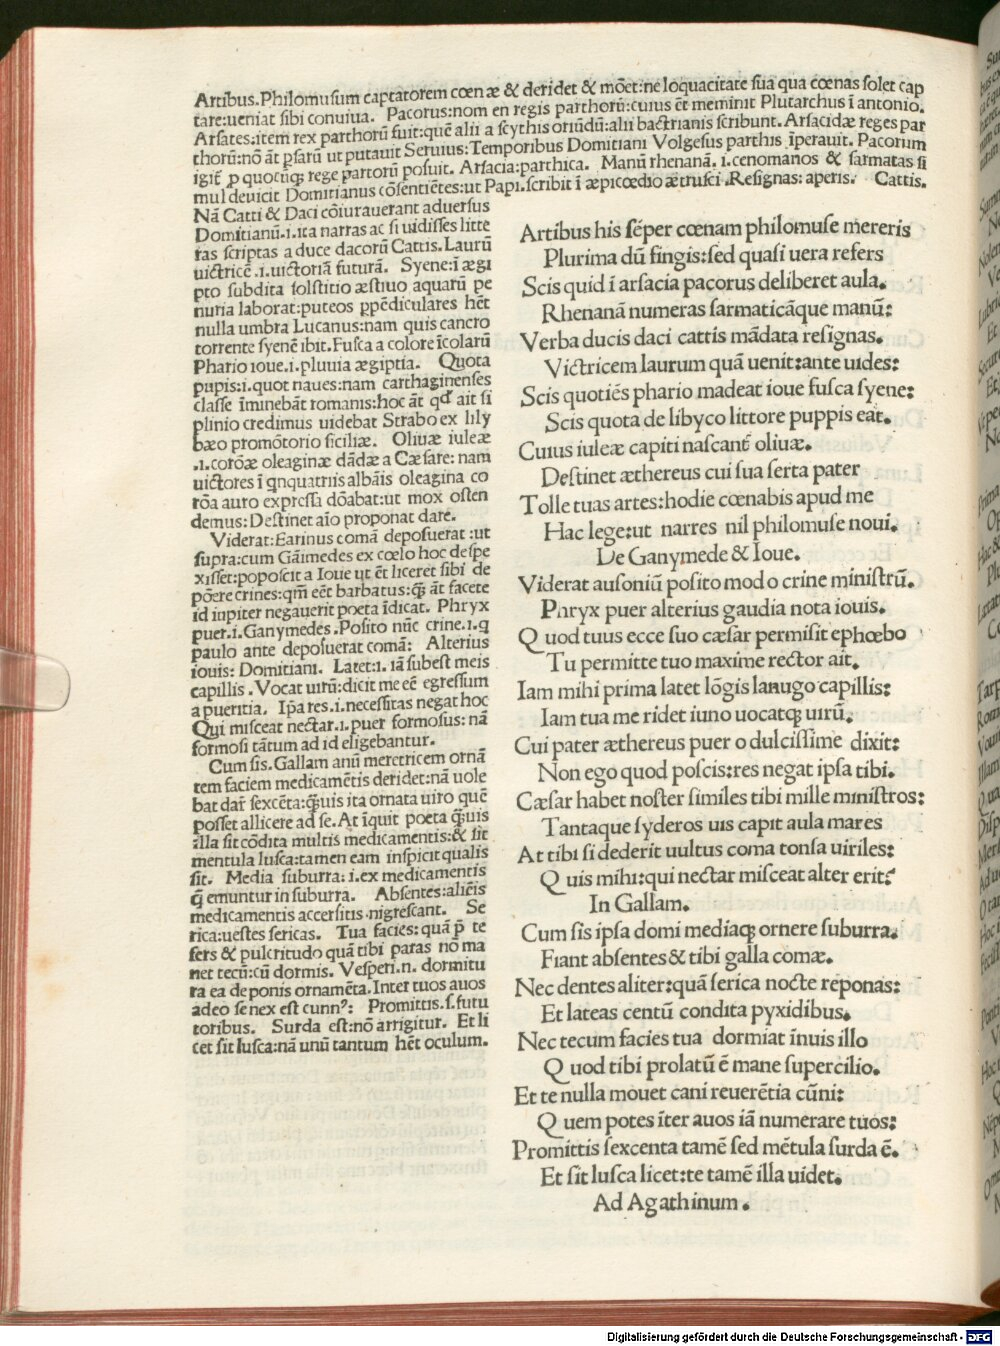 Artibus.Philomusum captatorem cœnæ & deridet & mōet:ne loquacitate sua qua cœnas solet cap
tare:ueniat sibi conuiua. Pacorus:nom en regis parthorū:cuius ēt meminit Plutarchus ī antonio.
Arsates:item rex parthorū fuit:quē alii a scythis oriūdū:alii bactrianis scribunt. Arsacidæ reges par
thorū:nō āt psarū ut putauit Seruius:Temporibus Domitiani Volgesus parthis īperauit. Pacorum
igit̄ ꝑ quocūqꝫ rege partorū posuit. Arsacia:parthica. Manū rhenanā. i.cenomanos & sarmatas si
mul deuicit Domitianus cōsentiētes:ut Papi.scribit ī æpicœdio ætrusci .Resignas: aperis. Cattis.
Nā Catti & Daci cōiurauerant aduersus
Domitianū.i.ita narras ac si uidisses litte
ras scriptas a duce dacorū Cattis.Laurū
uictricē.i.uictoriā futurā. Syene:ī ægi
pto subdita solstitio æstiuo aquarū pe
nuria laborat:puteos ppēdiculares hēt
nulla umbra Lucanus:nam quis cancro
torrente syenē ibit.Fusca a colore īcolarū
Phario ioue.i.pluuia ægiptia. Quota
pupis:i.quot naues:nam carthaginenses
classe īminebāt romanis:hoc āt qd̄ ait si
plinio credimus uidebat Strabo ex lily
bæo promōtorio siciliæ. Oliuæ iuleæ
.i.corōæ oleaginæ dādæ a Cæsare: nam
uictores ī qnquatriis albāis oleagina co
rōa auro expressa dōabat:ut mox osten
demus:Destinet aīo proponat dare.
Viderat:Earinus comā deposuerat :ut
supra:cum Gāimedes ex cœlo hoc despe
xisset:poposcit a Ioue ut ēt liceret sibi de
pōere crines:qm̄ eēt barbatus:qꝫ āt facete
id iupiter negauerit poeta īdicat. Phryx
puer.i.Ganymedes .Posito nūc crine.i.q
paulo ante deposuerat comā: Alterius
iouis: Domitiani. Latet:i. iā subest meis
capillis .Vocat uirū:dicit me eē egressum
a pueritia. Ipa res.i.necessitas negat hoc
Qui misceat nectar.i.puer formosus: nā
formosi tātum ad id eligebantur.
Cum sis.Gallam anū meretricem ornā
tem faciem medicamētis deridet:nā uole
bat dar̄ sexcēta:qꝫuis ita ornata uiro quē
posset allicere ad se.At īquit poeta qꝫuis
illa sit cōdita multis medicamentis:& sit
mentula lusca:tamen eam inspicit qualis
sit. Media suburra: i.ex medicamentis
q̄ emuntur in suburra. Absentes:aliēis
medicamentis accersitis nigrescant. Se
rica:uestes sericas. Tua facies: quā p̄ te
fers & pulcritudo quā tibi paras nō ma
net tecū:cū dormis. Vesperi.n. dormitu
ra ea deponis ornamēta.Inter tuos auos
adeo senex est cunnꝰ: Promittis.s.futu
toribus. Surda est:nō arrigitur. Et li
cet sit lusca:nā unū tantum hēt oculum.
Artibus his sēper cœnam philomuse mereris
Plurima dū fingis:sed quasi uera refers
Scis quid ī arsacia pacorus deliberet aula.
Rhenanā numeras sarmaticāque manū:
Verba ducis daci cattis mādata resignas.
Victricem laurum quā uenit:ante uides:
Scis quotiēs phario madeat ioue fusca syene:
Scis quota de libyco littore puppis eat.
Cuius iuleæ capiti nascant̄ oliuæ.
Destinet æthereus cui sua serta pater
Tolle tuas artes:hodie cœnabis apud me
Hac lege:ut narres nil philomuse noui.
De Ganymede & Ioue.
Viderat ausoniū posito mod o crine ministrū.
Phryx puer alterius gaudia nota iouis.
Q uod tuus ecce suo cæsar permisit ephœbo
Tu permitte tuo maxime rector ait.
Iam mihi prima latet lōgis lanugo capillis:
Iam tua me ridet iuno uocatqꝫ uirū.
Cui pater æthereus puer o dulcissime dixit:
Non ego quod poscis:res negat ipsa tibi.
Cæsar habet noster similes tibi mille ministros:
Tantaque syderos uis capit aula mares
At tibi si dederit uultus coma tonsa uiriles:
Q uis mihi:qui nectar misceat alter erit:
In Gallam.
Cum sis ipsa domi mediaqꝫ ornere suburra.
Fiant absentes & tibi galla comæ.
Nec dentes aliter:quā serica nocte reponas:
Et lateas centū condita pyxidibus.
Nec tecum facies tua dormiat īnuis illo
Q uod tibi prolatū ē mane supercilio.
Et te nulla mouet cani reuerētia cūni:
Q uem potes īter auos iā numerare tuos:
Promittis sexcenta tamē sed mētula surda ē.
Et sit lusca licet:te tamē illa uidet.
Ad Agathinum .
Digitalisierung gefördert durch die Deutsche Forschungsgemeinschaft - DFG